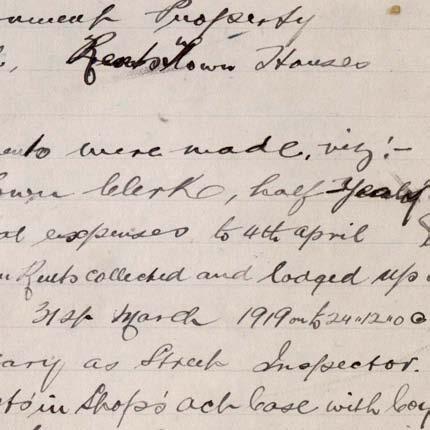 Property
Rents Town Houses
were made, viz:-
Clerk, half Yearly
expenses to 4th april
Rents collected and lodged up
31st March 1919
as Street Inspector.
in Shops act Case with